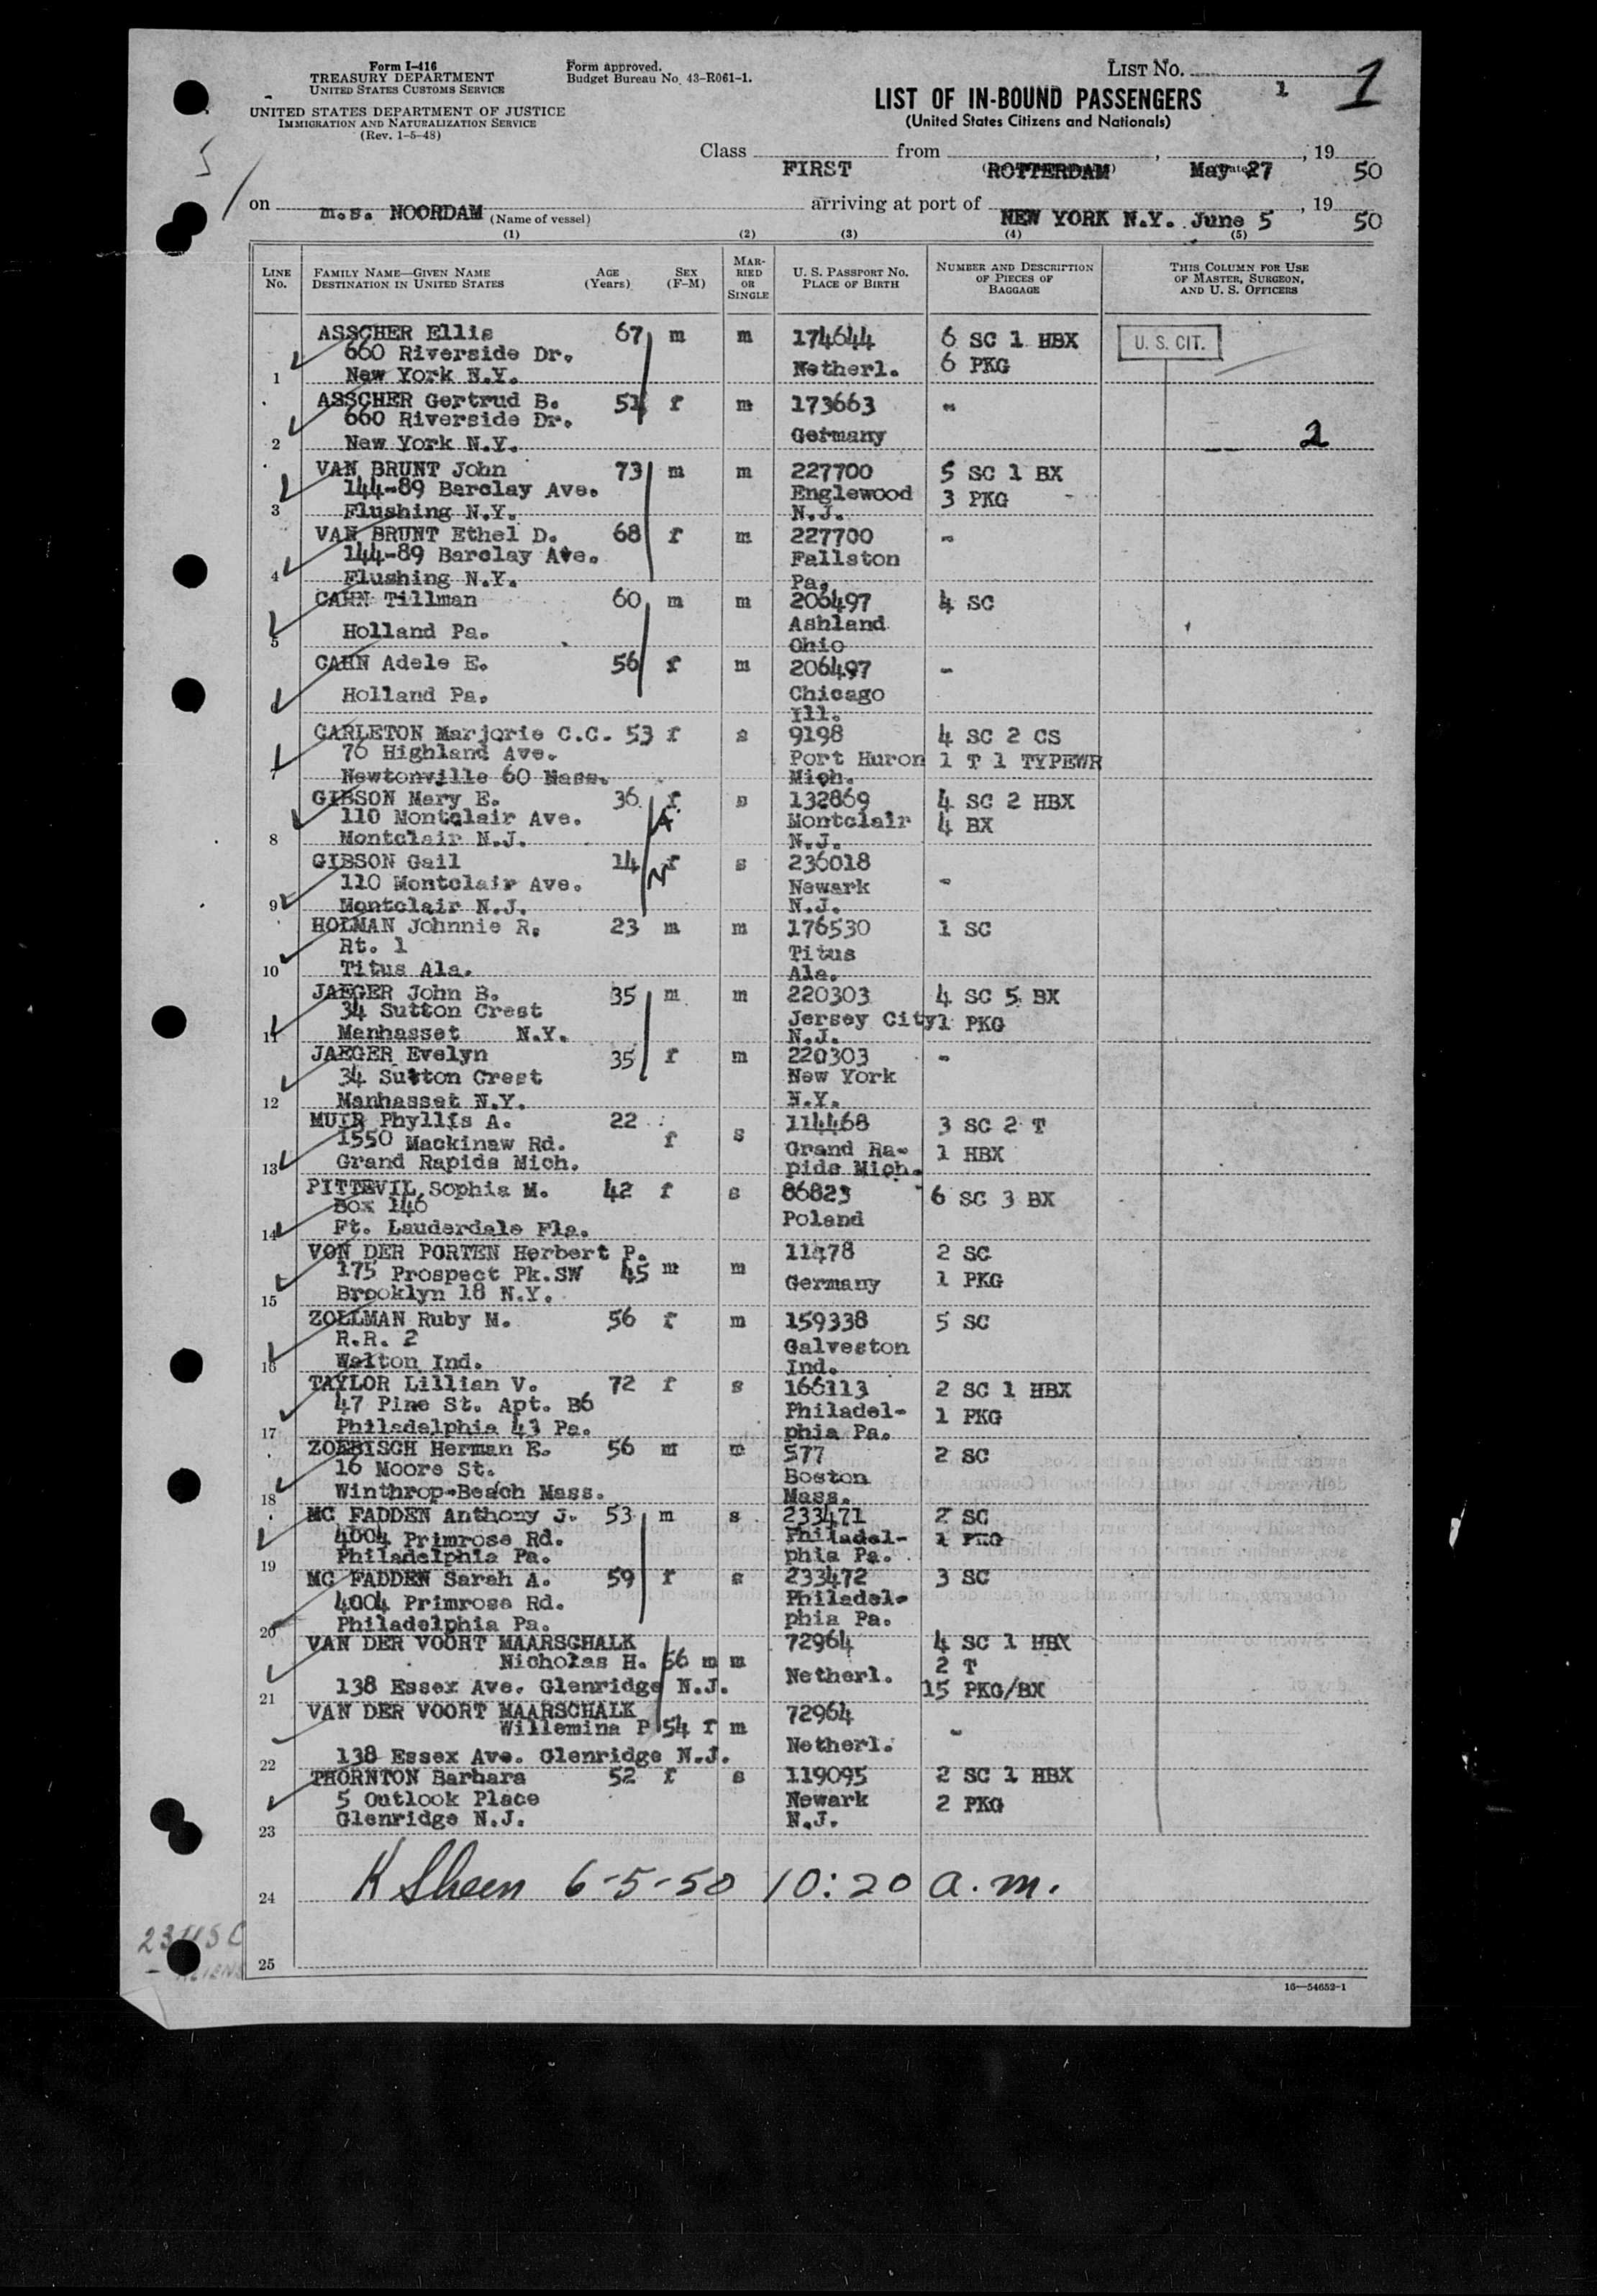 Form I-416
TREASURY DEPARTMENT
UNITED STATES CUSTOMS SERVICE
UNITED STATES DEPARTMENT OF JUSTICE
IMMIGRATION AND NATURALIZATION SERVICE
(Rev. 1-5-48)
Form approved.
Budget Bureau No. 43-R061-1.
LIST NO. 1
1
LIST OF IN-BOUND PASSENGERS
(United States Citizens and Nationals)
Class FIRST from ROTTERDAM, May 27, 19 50
on m.s. NOORDAM (Name of vessel) arriving at port of NEW YORK N.Y. June 5, 19 50
(1) (2) (3) (4) (5)
LINE No. FAMILY NAME—GIVEN NAME DESTINATION IN UNITED STATES AGE (Years) SEX (F-M) MARRIED OR SINGLE U. S. PASSPORT NO. PLACE OF BIRTH NUMBER AND DESCRIPTION OF PIECES OF BAGGAGE THIS COLUMN FOR USE OF MASTER, SURGEON, AND U. S. OFFICERS
ASSCHER Ellis 67 m m 174644 6 SC 1 HBX U. S. CIT.
660 Riverside Dr. Netherl. 6 PKG
1 New York N.Y.
ASSCHER Gertrud B. 51 f m 173663 -
660 Riverside Dr.
2 New York N.Y. Germany 2
VAN BRUNT John 73 m m 227700 5 SC 1 BX
144-89 Barclay Ave. Englewood 3 PKG
3 Flushing N.Y. N.J.
VAN BRUNT Ethel D. 68 f m 227700 -
144-89 Barclay Ave. Fallston
4 Flushing N.Y. Pa.
CAHN Tillman 60 m m 206497 4 SC
Holland Pa. Ashland
5 Ohio
CAHN Adele E. 56 f m 206497 -
Holland Pa. Chicago
6 Ill.
CARLETON Marjorie C.C. 53 f s 9198 4 SC 2 CS
76 Highland Ave. Port Huron 1 T 1 TYPEWR
7 Newtonville 60 Mass. Mich.
GIBSON Mary E. 36 f s 132869 4 SC 2 HBX
110 Montclair Ave. Montclair 4 BX
8 Montclair N.J. N.J.
GIBSON Gail 14 f s 236018
110 Montclair Ave. Newark -
9 Montclair N.J. N.J.
HOLMAN Johnnie R. 23 m m 176530 1 SC
Rt. 1 Titus
10 Titus Ala. Ala.
JAEGER John B. 35 m m 220303 4 SC 5 BX
34 Sutton Crest Jersey City 1 PKG
11 Manhasset N.Y. N.J.
JAEGER Evelyn 35 f m 220303 -
34 Sutton Crest New York
12 Manhasset N.Y. N.Y.
MUIR Phyllis A. 22 f s 114468 3 SC 2 T
1550 Mackinaw Rd. Grand Ra- 1 HBX
13 Grand Rapids Mich. pids Mich.
PITTEVIL Sophia M. 42 f s 86823 6 SC 3 BX
Box 146 Poland
14 Ft. Lauderdale Fla.
VON DER PORTEN Herbert P. 11478 2 SC
175 Prospect Pk.SW 45 m m Germany 1 PKG
15 Brooklyn 18 N.Y.
ZOLLMAN Ruby M. 56 f m 159338 5 SC
R.R. 2 Galveston
16 Walton Ind. Ind.
TAYLOR Lillian V. 72 f s 166113 2 SC 1 HBX
47 Pine St. Apt. B6 Philadel- 1 PKG
17 Philadelphia 43 Pa. phia Pa.
ZOEBISCH Herman E. 56 m m 577 2 SC
16 Moore St. Boston
18 Winthrop-Beach Mass. Mass.
MC FADDEN Anthony J. 53 m s 233471 2 SC
4004 Primrose Rd. Philadel- 1 PKG
19 Philadelphia Pa. phia Pa.
MC FADDEN Sarah A. 59 f s 233472 3 SC
4004 Primrose Rd. Philadel-
20 Philadelphia Pa. phia Pa.
VAN DER VOORT MAARSCHALK 72964 4 SC 1 HBX
Nicholas H. 56 m m Netherl. 2 T
21 138 Essex Ave. Glenridge N.J. 15 PKG/BX
VAN DER VOORT MAARSCHALK 72964
Willemina P 54 f m Netherl. -
22 138 Essex Ave. Glenridge N.J.
THORNTON Barbara 52 f s 119095 2 SC 1 HBX
5 Outlook Place Newark 2 PKG
23 Glenridge N.J. N.J.
24 K Sheen 6-5-50 10:20 a.m.
25
16—54652-1